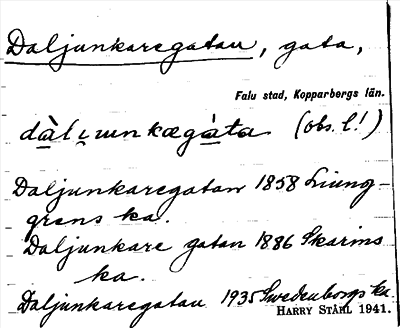 Daljunkaregatan, gata,
Falu stad, Kopparbergs län.
dàli̯uŋkægàta (obs. l!)
Daljunkaregatan 1858 Ljung-
grens ka.
Daljunkare gatan 1886 Skarins
ka.
Daljunkaregatan 1935 Swedenborgs ka.
HARRY STÅHL 1941.